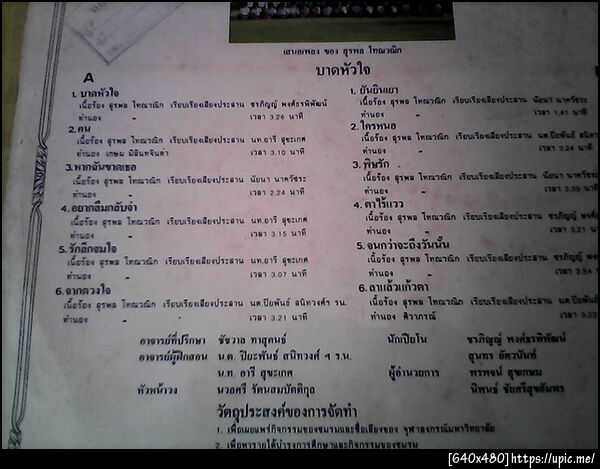 เสนอเพลง ของ สุรพล โทณวณิก
บาดหัวใจ
A
1. บาดหัวใจ
เนื้อร้อง สุรพล โทณวณิก เรียบเรียงเสียงประสาน ชรภิญญ์ พงศ์ธรพิพัฒน์
ทำนอง " เวลา 3.26 นาที
2. คน
เนื้อร้อง สุรพล โทณวณิก เรียบเรียงเสียงประสาน นท.อารี สุขะเกศ
ทำนอง เกษม มิลินทจินดา เวลา 3.10 นาที
3. หากฉันขาดเธอ
เนื้อร้อง สุรพล โทณวณิก เรียบเรียงเสียงประสาน นัยนา นาควัชระ
ทำนอง " เวลา 2.24 นาที
4. อยากลืมกลับจำ
เนื้อร้อง สุรพล โทณวณิก เรียบเรียงเสียงประสาน นท.อารี สุขะเกศ
ทำนอง " เวลา 3.15 นาที
5. รักลึกอมใจ
เนื้อร้อง สุรพล โทณวณิก เรียบเรียงเสียงประสาน นท.อารี สุขะเกศ
ทำนอง " เวลา 3.07 นาที
6. จากดวงใจ
เนื้อร้อง สุรพล โทณวณิก เรียบเรียงเสียงประสาน นต.ปิยพันธ์ สนิทวงศ์ฯ รน.
ทำนอง " เวลา 3.21 นาที
1. ยันยินเยา
เนื้อร้อง สุรพล โทณวณิก เรียบเรียงเสียงประสาน นัยนา นาควัชระ
ทำนอง " เวลา 1.41 นาที
2. ใครหนอ
เนื้อร้อง สุรพล โทณวณิก เรียบเรียงเสียงประสาน นต.ปิยพันธ์
ทำนอง " เวลา 3.24 นาที
3. พิษรัก
เนื้อร้อง สุรพล โทณวณิก เรียบเรียงเสียงประสาน นัยนา นาควัชระ
ทำนอง " เวลา 3.39 นาที
4. ตาไร้แวว
เนื้อร้อง สุรพล โทณวณิก เรียบเรียงเสียงประสาน ชรภิญญ์
ทำนอง " เวลา 3.21
5. จนกว่าจะถึงวันนั้น
เนื้อร้อง สุรพล โทณวณิก เรียบเรียงเสียงประสาน ชรภิญญ์
ทำนอง " เวลา 2.54
6. ลาแล้วแก้วตา
เนื้อร้อง สุรพล โทณวณิก เรียบเรียงเสียงประสาน นต.ปิยพันธ์
ทำนอง ศิวาภรณ์ เวลา
อาจารย์ที่ปรึกษา ชัชวาล ทาสุคนธ์
อาจารย์ผู้ฝึกสอน น.ต. ปิยะพันธ์ สนิทวงศ์ ฯ ร.น.
น.ท. อารี สุขะเกศ
หัวหน้าวง นวลศรี รัตนสมบัติกุล
นักเปียโน ชรภิญญ์ พงศ์ธรพิพัฒน์
สุนทร อัศวนันท์
ผู้อำนวยการ พรพจน์ สุขเกษม
นิพนธ์ ชัยศรีสุขอัมพร
วัตถุประสงค์ของการจัดทำ
1. เพื่อเผยแพร่กิจกรรมของชมรมและชื่อเสียงของ จุฬาลงกรณ์มหาวิทยาลัย
2. เพื่อหารายได้บำรุงการศึกษาและกิจกรรมของชมรม
[640x480]https://upic.me/